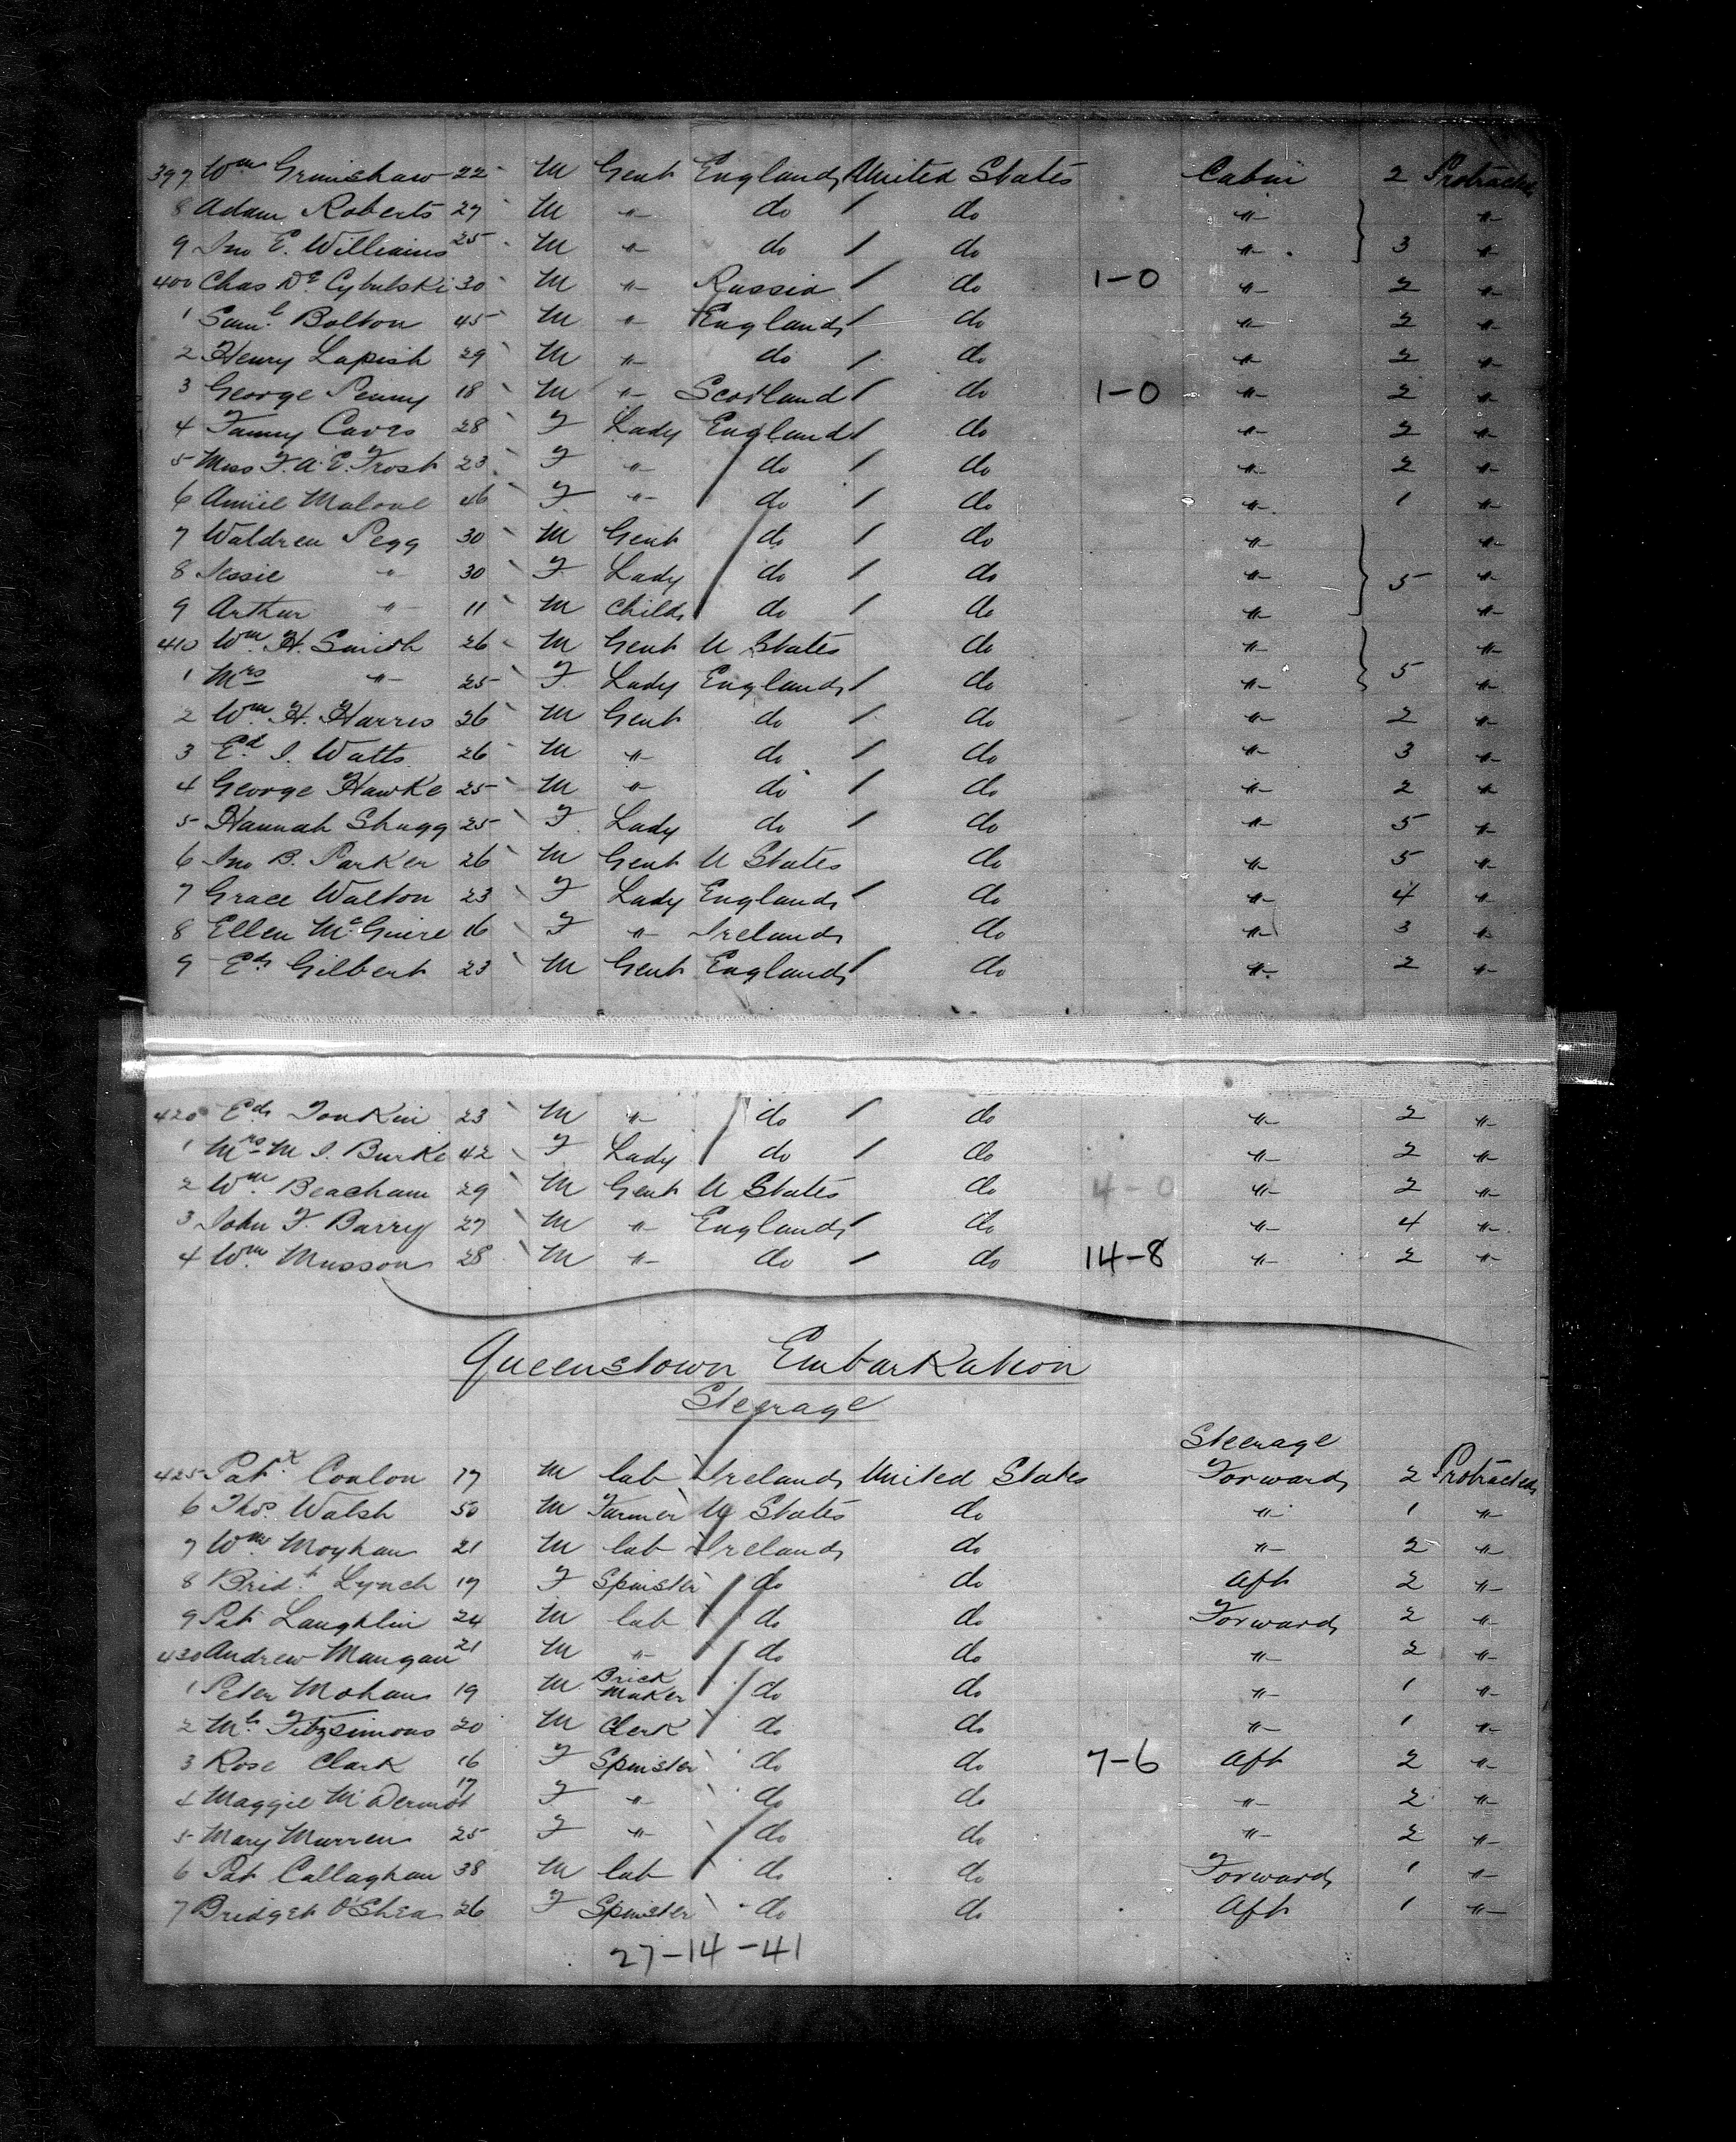 397 Wm Grimshaw 22 M Gent England United States Cabin 2 Protracted
8 Adam Roberts 27 M " do do "  "
9 Jno E. Williams 25 M " do do " 3 "
400 Chas De Cybulski 30 M " Russia do 1-0 " 2 "
1 Saml Bolton 45 M " England do " 2 "
2 Henry Lapish 29 M " do do " 2 "
3 George Penny 18 M " Scotland do 1-0 " 2 "
4 Fanny Caves 28 F Lady England do " 2 "
5 Miss F. A. E. Frost 23 F " do do " 2 "
6 Annie Malone 46 F " do do " 1 "
7 Waldren Pegg 30 M Gent do do " "
8 Jessie " 30 F Lady do do " 5 "
9 Arthur " 11 M Child do do " "
410 Wm H. Smith 26 M Gent U States do " "
1 Mrs " 25 F Lady England do " 5 "
2 Wm H. Harris 26 M Gent do do " 2 "
3 Ed J. Watts 26 M " do do " 3 "
4 George Hawke 25 M " do do " 2 "
5 Hannah Shugg 25 F Lady do do " 5 "
6 Jno B. Parker 26 M Gent U States do " 5 "
7 Grace Walton 23 F Lady England do " 4 "
8 Ellen McGuire 16 F " Ireland do " 3 "
9 Ed Gilbert 23 M Gent England do " 2 "
420 Ed Tonkin 23 M " do do " 2 "
1 Mrs M J. Burke 42 F Lady do do " 2 "
2 Wm Beacham 29 M Gent U States do 4-0 " 2 "
3 John F. Barry 27 M " England do " 4 "
4 Wm Musson 28 M " do do 14-8 " 2 "
Queenstown Embarkation
Steerage
Steerage
425 Patk Conlon 17 M lab Ireland United States Forward 2 Protracted
6 Thos Walsh 50 M Farmer U States do " 1 "
7 Wm Moyhan 21 M lab Ireland do " 2 "
8 Bridt Lynch 17 F Spinster do do Aft 2 "
9 Pat Laughlin 24 M lab do do Forward 2 "
430 Andrew Mangan 21 M " do do " 2 "
1 Peter Mohan 19 M Brick Maker do do " 1 "
2 Ml Fitzsimons 20 M Clerk do do " 1 "
3 Rose Clark 16 F Spinster do do 7-6 Aft 2 "
4 Maggie McDermot 17 F " do do " 2 "
5 Mary Murren 25 F " do do " 2 "
6 Pat Callaghan 38 M lab do do Forward 1 "
7 Bridget O'Shea 26 F Spinster do do Aft 1 "
27-14-41